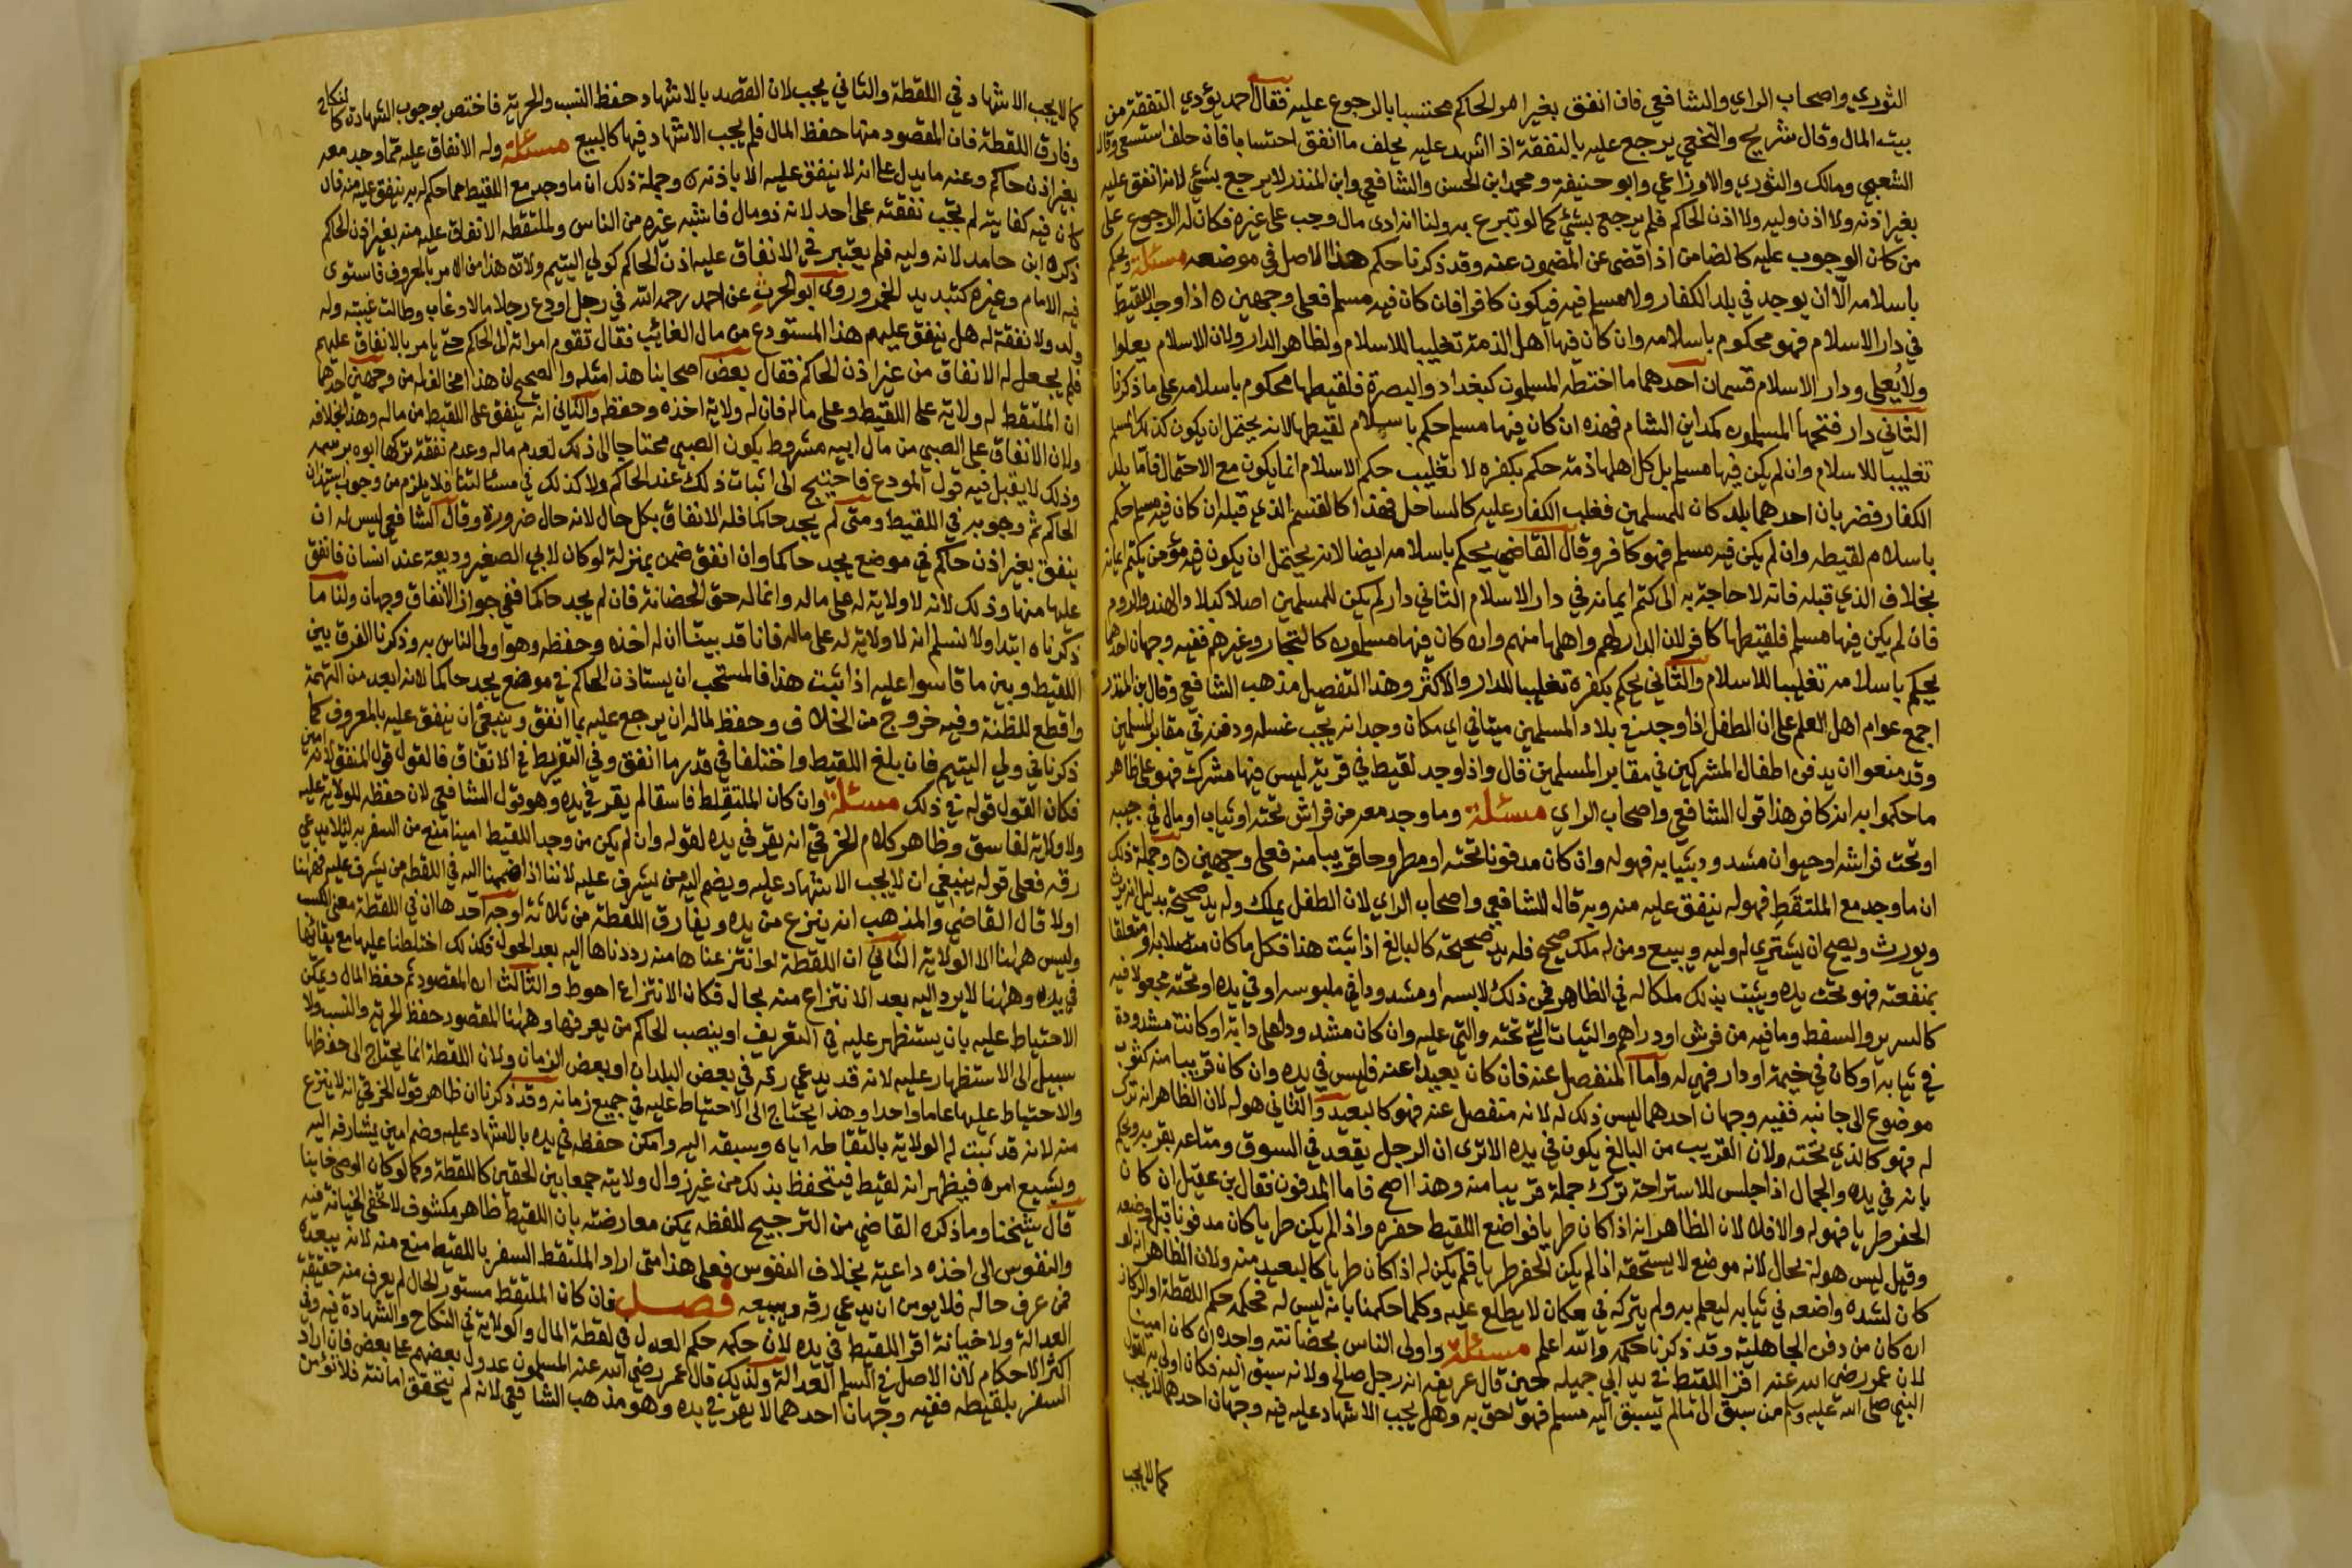 الثوري واصحاب الراي والشافعي فان انفق بغير امر الحاكم محتسبا بالرجوع عليه فقال احمد يؤدي النفقة من
بيت المال وقال شريح والنخعي يرجع عليه بالنفقة اذا اشهد عليه يحلف ما انفق احتسابا فان حلف استسعي وقال
الشعبي ومالك والثوري والاوزاعي وابو حنيفة ومحمد ابن الحسن والشافعي وابن المنذر لا يرجع بشئ لانه انفق عليه
بغير اذنه ولا اذن وليه ولا اذن الحاكم فلم يرجع بشئ كما لو تبرع به ولنا انه ادى مال وجب على غيره فكان له الرجوع على
من كان الوجوب عليه كالضامن اذا قضى عن المضمون عنه وقد ذكرنا حكم هذا الاصل في موضعه مسئلة ويحكم
باسلامه الا ان يوجد في بلد الكفار ولا مسلم فيه فيكون كافرا فان كان فيه مسلم فعلى وجهين ه اذا وجد اللقيط
في دار الاسلام فهو محكوم باسلامه وان كان فيها اهل الذمة تغليبا للاسلام ولظاهر الدار ولان الاسلام يعلوا
ولا يُعلى ودار الاسلام قسمان احدهما ما اختطه المسلمون كبغداد والبصرة فلقيطها محكوم باسلامه على ما ذكرنا
الثاني دار فتحها المسلمون كمداين الشام فهذه ان كان فيها مسلم حكم باسلام لقيطها لانه يحتمل ان يكون كذلك المسلم
تغليبا للاسلام وان لم يكن فيها مسلم بل كل اهلها ذمة حكم بكفره لا تغليب حكم الاسلام انما يكون مع الاحتمال فاما بلد
الكفار فضربان احدهما بلد كان للمسلمين فغلب الكفار عليه كالساحل فهذا كالقسم الذي قبله ان كان فيه مسلم حكم
باسلام لقيطه وان لم يكن فيه مسلم فهو كافر وقال القاضي يحكم باسلامه ايضا لانه يحتمل ان يكون فيه مؤمن يكتم ايمانه
بخلاف الذي قبله فانه لا حاجة به الى كتم ايمانه في دار الاسلام الثاني دار لم يكن للمسلمين اصلا كبلاد الهند والروم
فان لم يكن فيها مسلم فلقيطها كافر لان الدار لهم واهلها منهم وان كان فيها مسلمون كالتجار وغيرهم ففيه وجهان احدهما
يحكم باسلامه تغليبا للاسلام والثاني يحكم بكفره تغليبا للدار والاكثر وهذا التفصيل مذهب الشافعي وقال بن المنذر
اجمع عوام اهل العلم على ان الطفل اذا وجد في بلاد المسلمين ميتا في اي مكان وجد انه يجب غسله ودفنه في مقابر المسلمين
وقد منعوا ان يدفن اطفال المشركين في مقابر المسلمين قال واذا وجد لقيط في قرية ليس فيها مشرك فهو على ظاهر
ما حكموا به انه كافر هذا قول الشافعي واصحاب الراي مسئلة وما وجد معه من فراش تحته او ثياب او مال في جيبه
او تحت فراشه او حيوان مشدود بثيابه فهو له وان كان مدفونا تحته او مطروحا قريبا منه فعلى وجهين ه وجملة ذلك
ان ما وجد مع الملتقط فهو له ينفق عليه منه وبه قال الشافعي واصحاب الراي لان الطفل يملك وله يد صحيحة بدليل انه يرث
ويورث ويصح ان يشتري له وليه ويبيع ومن له ملك صحيح فله يد صحيحة كالبالغ اذا ثبت هذا فكل ما كان متصلا به او متعلقا
بمنفعته فهو تحت يده ويثبت بذلك ملكا له في الظاهر فمن ذلك لابسه او مشدودا في ملبوسه او في يده او تحته مجعولا فيه
كالسرير والسقط وما فيه من فرش او دراهم والثياب التي تحته والتي عليه وان كان مشدودا على دابة او كانت مشدودة
في ثيابه او كان في خيمة او دار فهي له واما المنفصل عنه فان كان بعيدا عنه فليس في يده وان كان قريبا منه كثوب
موضوع الى جانبه ففيه وجهان احدهما ليس ذلك له لانه منفصل عنه فهو كالبعيد والثاني هو له لان الظاهر انه ترك
له فهو كالذي تحته ولان القريب من البالغ يكون في يده الا ترى ان الرجل يقعد في السوق ومتاعه بقربه ويحكم
بانه في يده والجمال اذا جلس للاستراحة ترك جملة قريبا منه وهذا اصح فاما المدفون فقال بن عقيل ان كان
الحفر طريا فهو له والا فلا لان الظاهر انه اذا كان طريا فواضع اللقيط حفره واذا لم يكن طريا كان مدفونا قبل وضعه
وقيل ليس هو له بحال لانه موضع لا يستحقه اذا لم يكن الحفر طريا فلم يكن له اذا كان طريا كالبعيد منه ولان الظاهر انه لو
كان لشده واضعه في ثيابه ليعلم به ولم يتركه في مكان لا يطلع عليه وكلما حكمنا بانه ليس له فحكمه حكم اللقطة او الركاز
ان كان من دفن الجاهلية وقد ذكرنا حكمه والله اعلم مسئلة واولى الناس بحضانته واجده ان كان امينا
لان عمر رضي الله عنه اقر اللقيط في يد ابي جميله حين قال عريفه انه رجل صالح ولانه سبق اليه فكان اولى به لقول
النبي صلى الله عليه وسلم من سبق الى ما لم يسبق اليه مسلم فهو احق به وهل يجب الاشهاد عليه فيه وجهان احدهما لا يجب
كما لا يجب
كما لا يجب الاشهاد في اللقطة والثاني يجب لان القصد بالاشهاد حفظ النسب والحرية فاختص بوجوب الشهادة كالنكاح
وفارق اللقطة فان المقصود منها حفظ المال فلم يجب الاشهاد فيها كالبيع مسئلة وله الانفاق عليه مما وجد معه
بغير اذن حاكم وعنه ما يدل على انه لا ينفق عليه الا باذنه ه وجملة ذلك ان ما وجد مع اللقيط مما حكم له به ينفق عليه منه فان
كان فيه كفايته لم تجب نفقته على احد لانه ذو مال فاشبه غيره من الناس ولملتقطه الانفاق عليه منه بغير اذن الحاكم
ذكره ابن حامد لانه وليه فلم يعتبر في الانفاق عليه اذن الحاكم كولي اليتيم ولان هذا من الامر بالمعروف فاستوى
فيه الامام وغيره كتبديد الخمر وروى ابو الحرث عن احمد رحمه الله في رجل اودع رجلا مالا وغاب وطالت غيبته وله
ولد ولا نفقة له هل ينفق عليهم هذا المستودع من مال الغائب فقال تقوم امراته الى الحاكم حتى يامر بالانفاق عليهم
فلم يجعل له الانفاق من غير اذن الحاكم فقال بعض اصحابنا هذا مثله والصحيح ان هذا مخالف له من وجهين احدهما
ان الملتقط له ولاية على اللقيط وعلى ماله فان له ولاية اخذه وحفظه والثاني انه ينفق على اللقيط من ماله وهذا بخلافه
ولان الانفاق على الصبي من مال ابيه مشروط بكون الصبي محتاجا الى ذلك لعدم ماله وعدم نفقة تركها ابوه برسمه
وذلك لا يقبل فيه قول المودع فاحتيج الى اثبات ذلك عند الحاكم ولا كذلك في مسئلتنا فلا يلزم من وجوب استئذان
الحاكم ثم وجوبه في اللقيط ومتى لم يجد حاكما فله الانفاق بكل حال لانه حال ضرورة وقال الشافعي ليس له ان
ينفق بغير اذن حاكم في موضع يجد حاكما وان انفق ضمن بمنزلة لو كان لابي الصغير وديعة عند انسان فانفق
عليها منها وذلك لانه لا ولاية له على ماله وانما له حق الحضانة فان لم يجد حاكما ففي جواز الانفاق وجهان ولنا ما
ذكرناه ابتدا ولا نسلم انه لا ولاية له على ماله فانا قد بينا ان له اخذه وحفظه وهو اولى الناس به وذكرنا الفرق بين
اللقيط وبين ما قاسوا عليه اذا ثبت هذا فالمستحب ان يستاذن الحاكم في موضع يجد حاكما لانه ابعد من التهمة
واقطع للظنة وفيه خروج من الخلاف وحفظ لماله ان يرجع عليه بما انفق وينبغي ان ينفق عليه بالمعروف كما
ذكرنا في ولي اليتيم فان بلغ اللقيط واختلفا في قدر ما انفق وفي التفريط في الانفاق فالقول قول المنفق لانه امين
فكان القول قوله في ذلك مسئلة وان كان الملتقط فاسقا لم يقر في يده وهو قول الشافعي لان حفظه للولاية عليه
ولا ولاية لفاسق وظاهر كلام الخرقي انه يقر في يده لقوله وان لم يكن من وجد اللقيط امينا منع من السفر به لئلا يدعي
رقه فعلى قوله ينبغي ان لا يجب الاشهاد عليه ويضم اليه من يشرف عليه لاننا اذا ضممنا اليه في اللقطة من يشرف عليه فههنا
اولا قال القاضي والمذهب انه ينزع من يده ويفارق اللقطة من ثلاثة اوجه احدها ان في اللقطة معنى الكسب
وليس ههنا الا الولاية الثاني ان اللقطة لو انتزعناها منه رددناها اليه بعد الحول فكذلك احتطنا عليها مع بقائها
في يده وههنا لا يرد اليه بعد الانتزاع منه بحال فكان الانتزاع احوط والثالث ان المقصود ثم حفظ المال ويمكن
الاحتياط عليه بان يستظهر عليه في التعريف او ينصب الحاكم من يعرفها وههنا المقصود حفظ الحرية والنسب ولا
سبيل الى الاستظهار عليه لانه قد يدعي رقه في بعض البلدان او بعض الزمان ولان اللقطة انما يحتاج الى حفظها
والاحتياط عليها عاما واحدا وهذا يحتاج الى الاحتياط عليه في جميع زمانه وقد ذكرنا ان ظاهر قول الخرقي انه لا ينزع
منه لانه قد ثبتت له الولاية بالتقاطه اياه وسبقه اليه وامكن حفظه في يده بالاشهاد عليه وضم امين يشارفه اليه
ويشيع امره فيظهر انه لقيط فينحفظ بذلك من غير زوال ولايته جمعا بين الحقين كاللقطة وكما لو كان الوصي خاينا
قال شيخنا وما ذكره القاضي من الترجيح للفظه يمكن معارضته بان اللقيط ظاهر مكشوف لا تخفى الخيانة فيه
والنفوس الى اخذه داعية بخلاف النفوس فعلى هذا متى اراد الملتقط السفر باللقيط منع منه لانه يبعده
ممن عرف حاله فلا يومن ان يدعي رقه ويبيعه فصل فان كان الملتقط مستور الحال لم يعرف منه حقيقة
العدالة ولا خيانة اقر اللقيط في يده لان حكمه حكم العدل في لقطة المال والولاية في النكاح والشهادة فيه وفي
اكثر الاحكام لان الاصل في المسلم العدالة ولذلك قال عمر رضي الله عنه المسلمون عدول بعضهم على بعض فان اراد
السفر بلقيطه ففيه وجهان احدهما لا يقر في يده وهو مذهب الشافعي لانه لم يتحقق امانته فلا تؤمن